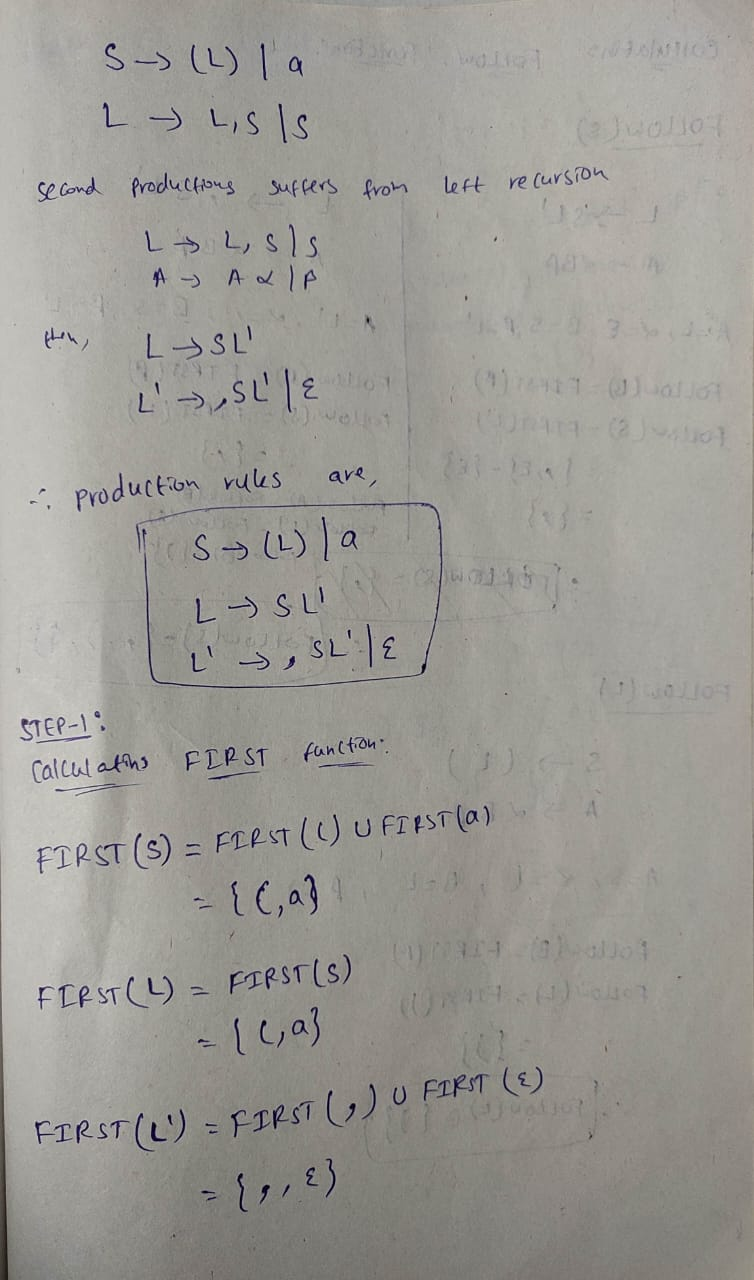 S → (L) | a
L → L,S | S
second productions suffers from left recursion
L → L, S | S
A → A α | β
then, L → SL'
L' → ,SL' | ε
∴ production rules are,
S → (L) | a
L → SL'
L' → , SL' | ε
STEP-1:
Calculating FIRST function:
FIRST(S) = FIRST(() ∪ FIRST(a)
= {(,a}
FIRST(L) = FIRST(S)
= {(,a}
FIRST(L') = FIRST(,) ∪ FIRST(ε)
= {,, ε}